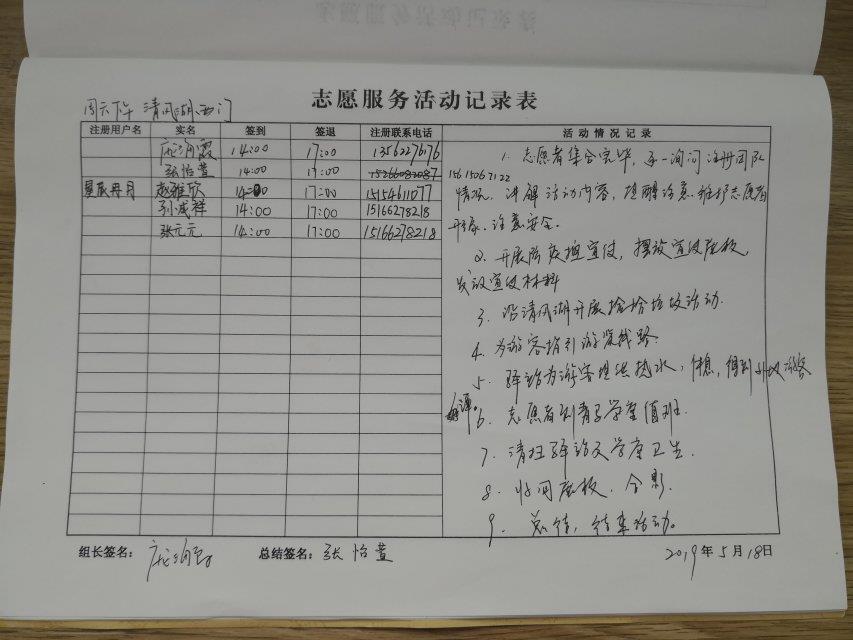 志愿服务活动记录表
周六下午 清风湖西门
注册用户名 实名 签到 签退 注册联系电话 活动情况记录
庞海霞 14:00 17:00 13562276176
张怡萱 14:00 17:00 15266082087
15615067122
星辰再月 赵雅欣 14:00 17:00 15154611077
孙成祥 14:00 17:00 15166278218
张元元 14:00 17:00 15166278218
1. 志愿者集合完毕,逐一询问注册团队
情况,讲解活动内容,提醒注意维护志愿者
形象、注意安全.
2. 开展防疫控宣传,摆放宣传展板,
发放宣传材料
3. 沿清风湖开展捡拾垃圾活动.
4. 为游客指引游览线路.
5. 驿站为游客提供热水,休息,得到外地游客
好评
6. 志愿者到青子学堂值班.
7. 清扫驿站及学堂卫生.
8. 收回展板、合影.
9. 总结,结束活动。
组长签名: 总结签名:张怡萱 2019年5月18日